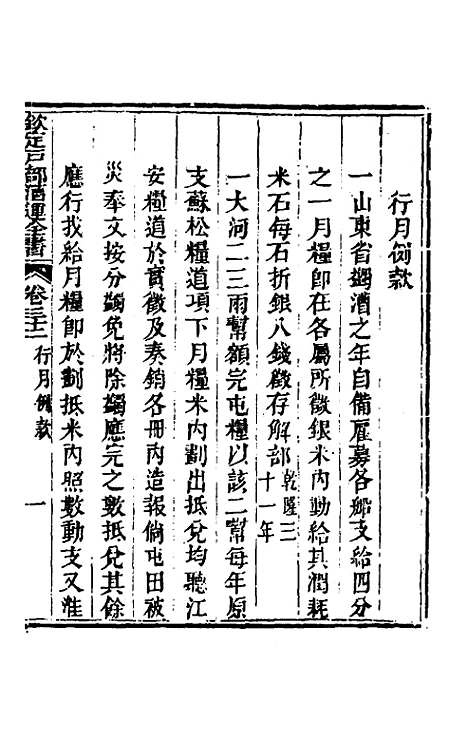 行月例款
一山東省蠲漕之年自備雇募各船支給四分
之一月糧卽在各屬所徵銀米內動給其潤耗
米石每石折銀八錢徵存解部乾隆三十一年
一大河二三兩幫額完屯糧以該二幫每年原
支蘇松糧道項下月糧米內劃出抵兌均聽江
安糧道於實徵及奏銷各冊內造報倘屯田被
災奉文按分蠲免將除蠲應完之數抵兌其餘
應行找給月糧卽於劃抵米內照數動支又淮
欽定戶部漕運全書 卷三十二 行月例款 一